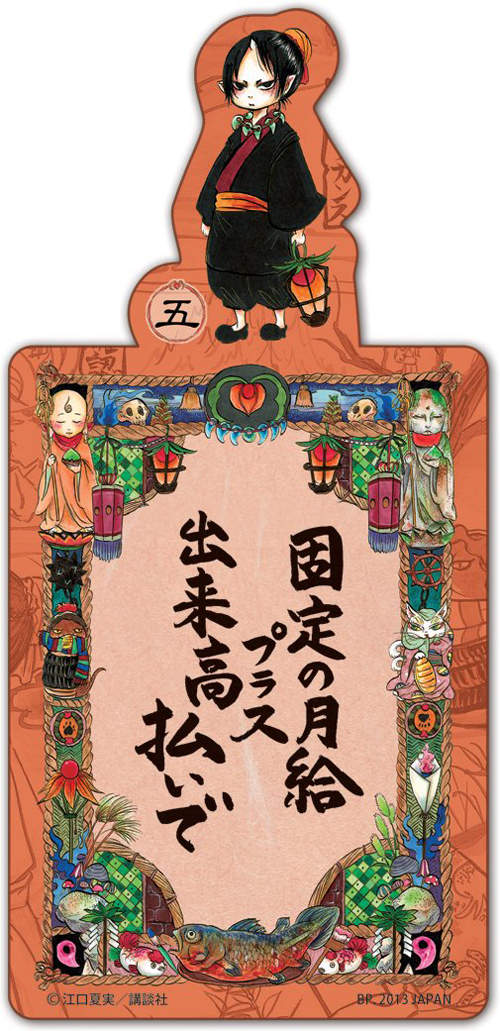 五
固定の月給
プラス
出来高払いで
© 江口夏実／講談社
BP_2013 JAPAN